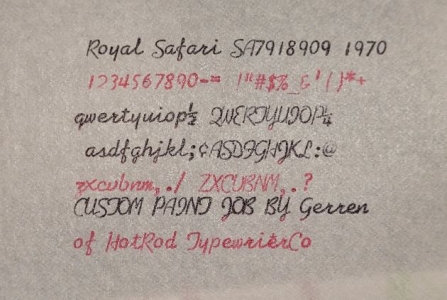 Royal Safari SA7918909 1970
1234567890-= !"#$%_&'()*+
qwertyuiop½ QWERTYUIOP¼
asdfghjkl;¢ASDFGHJKL:@
zxcvbnm,./ ZXCVBNM,.?
CUSTOM PAINT JOB BY Gerren
of HotRod TypewrierCo